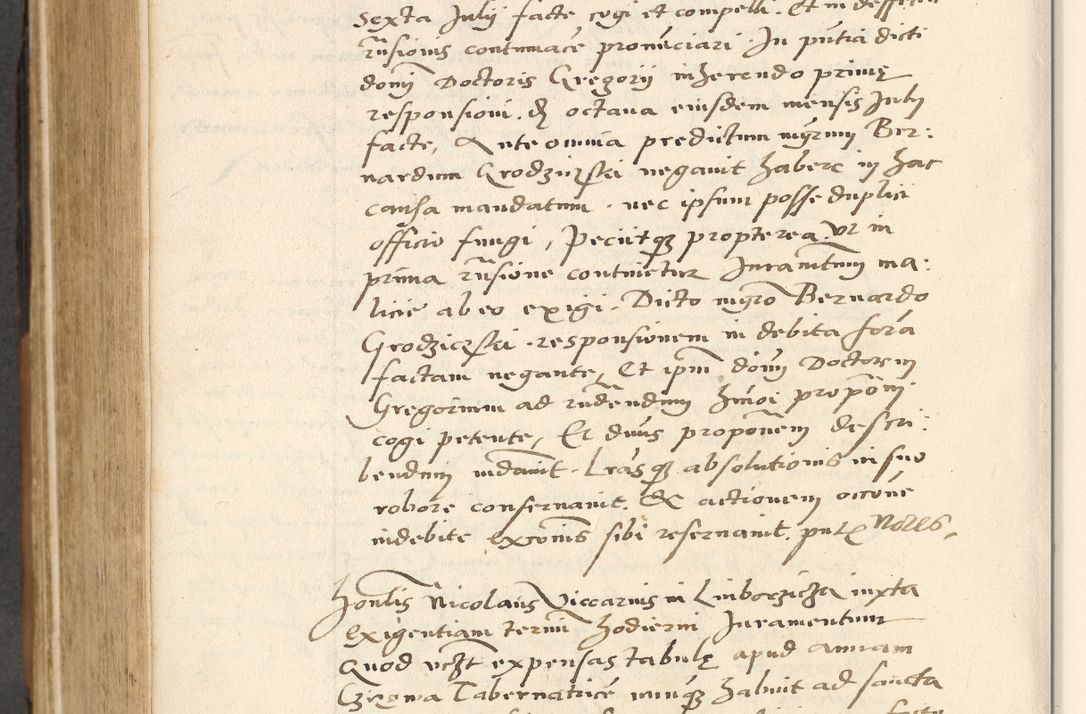 Sexta Julij facte cogi et compelli. Et in deffectu
rn̄sionis contumacē pronūciari. In pn̄tia dicti
domj Doctoris Gregorij inherendo primę
responsioni. de octaua eiusdem mensis Julij
facte, Ante omnia predictum mgrum Ber:
nardum Grodziczki negauit habere in hac
causa mandatum. nec ipsum posse duplici
officio fungi, Peciitqȝ propterea ut in
prima rn̄sione continetur Juramtum ma:
licie ab eo exigi. Dicto mgro Bernardo
Grodziczki responsionem in debita fora
factam negante, Et ipm̄ dominum Doctorem
Gregorium ad rn̄dendum hmōi propōni
cogi petente, Et dnus propōnem descri:
bendum mdauit. Lrāsqȝ absolutionis in suo
robore conseruauit. Et actionem occōne
indebite excōnis sibi reseruauit. pn̄tibus Nobilibus.
Honlis Nicolaus Viccarius in Liuborzicza iuxta
Exigentiam termi hodierni Juramentum
Quod uczt expensas tabulę apud Annam
Czegowa Tabernatricē nunqȝ habuit ad sancta